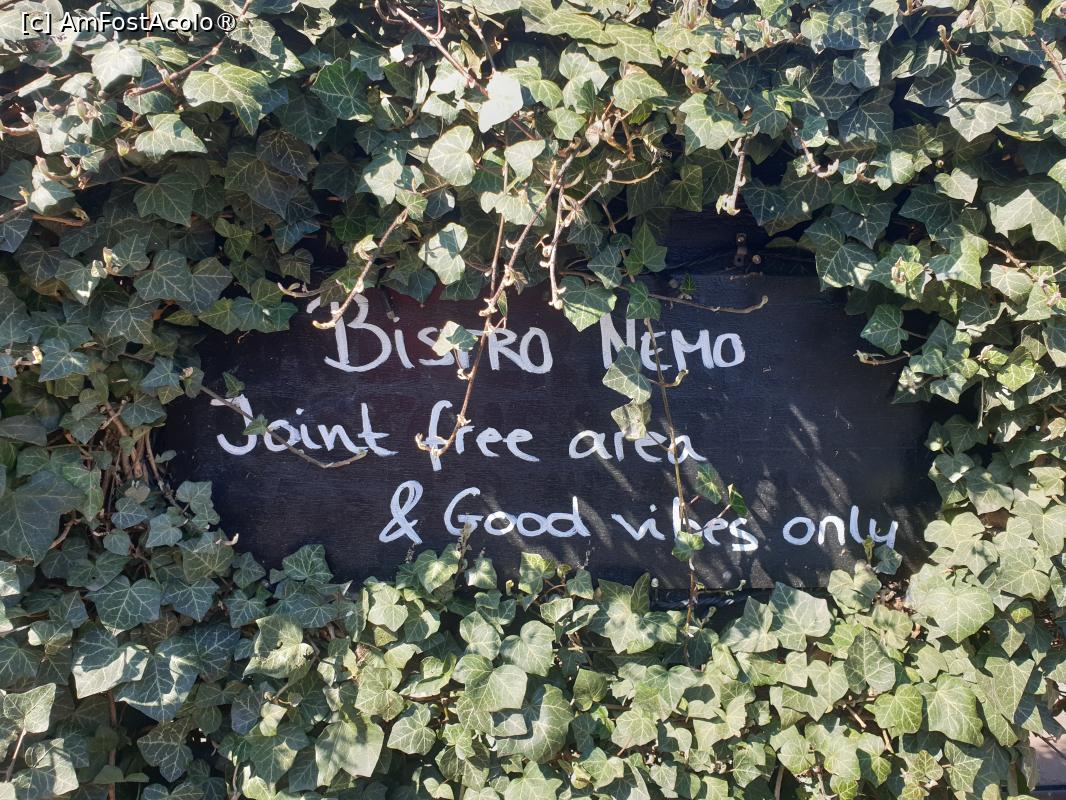 [c] AmFostAcolo®
Bistro Nemo
Joint free area
& Good vibes only